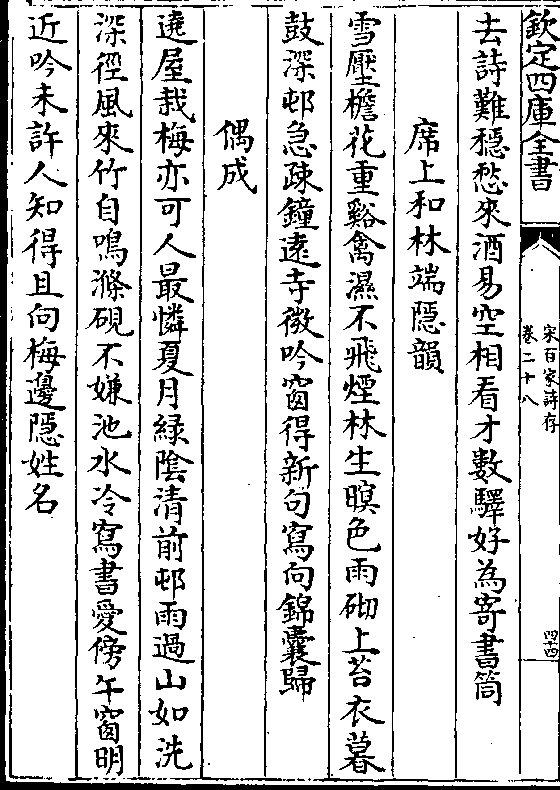 欽定四庫全書
宋百家詩存
卷二十八
四十四
去詩難穩愁來酒易空相看才數驛好為寄書筒
席上和林端隱韻
雪壓檐花重谿禽濕不飛煙林生暝色雨砌上苔衣暮
鼓深邨急疎鐘遠寺微吟窗得新句寫向錦囊歸
偶成
遶屋栽梅亦可人最憐夏月綠陰清前邨雨過山如洗
深徑風來竹自鳴滌硯不嫌池水冷寫書愛傍午窗明
近吟未許人知得且向梅邊隱姓名